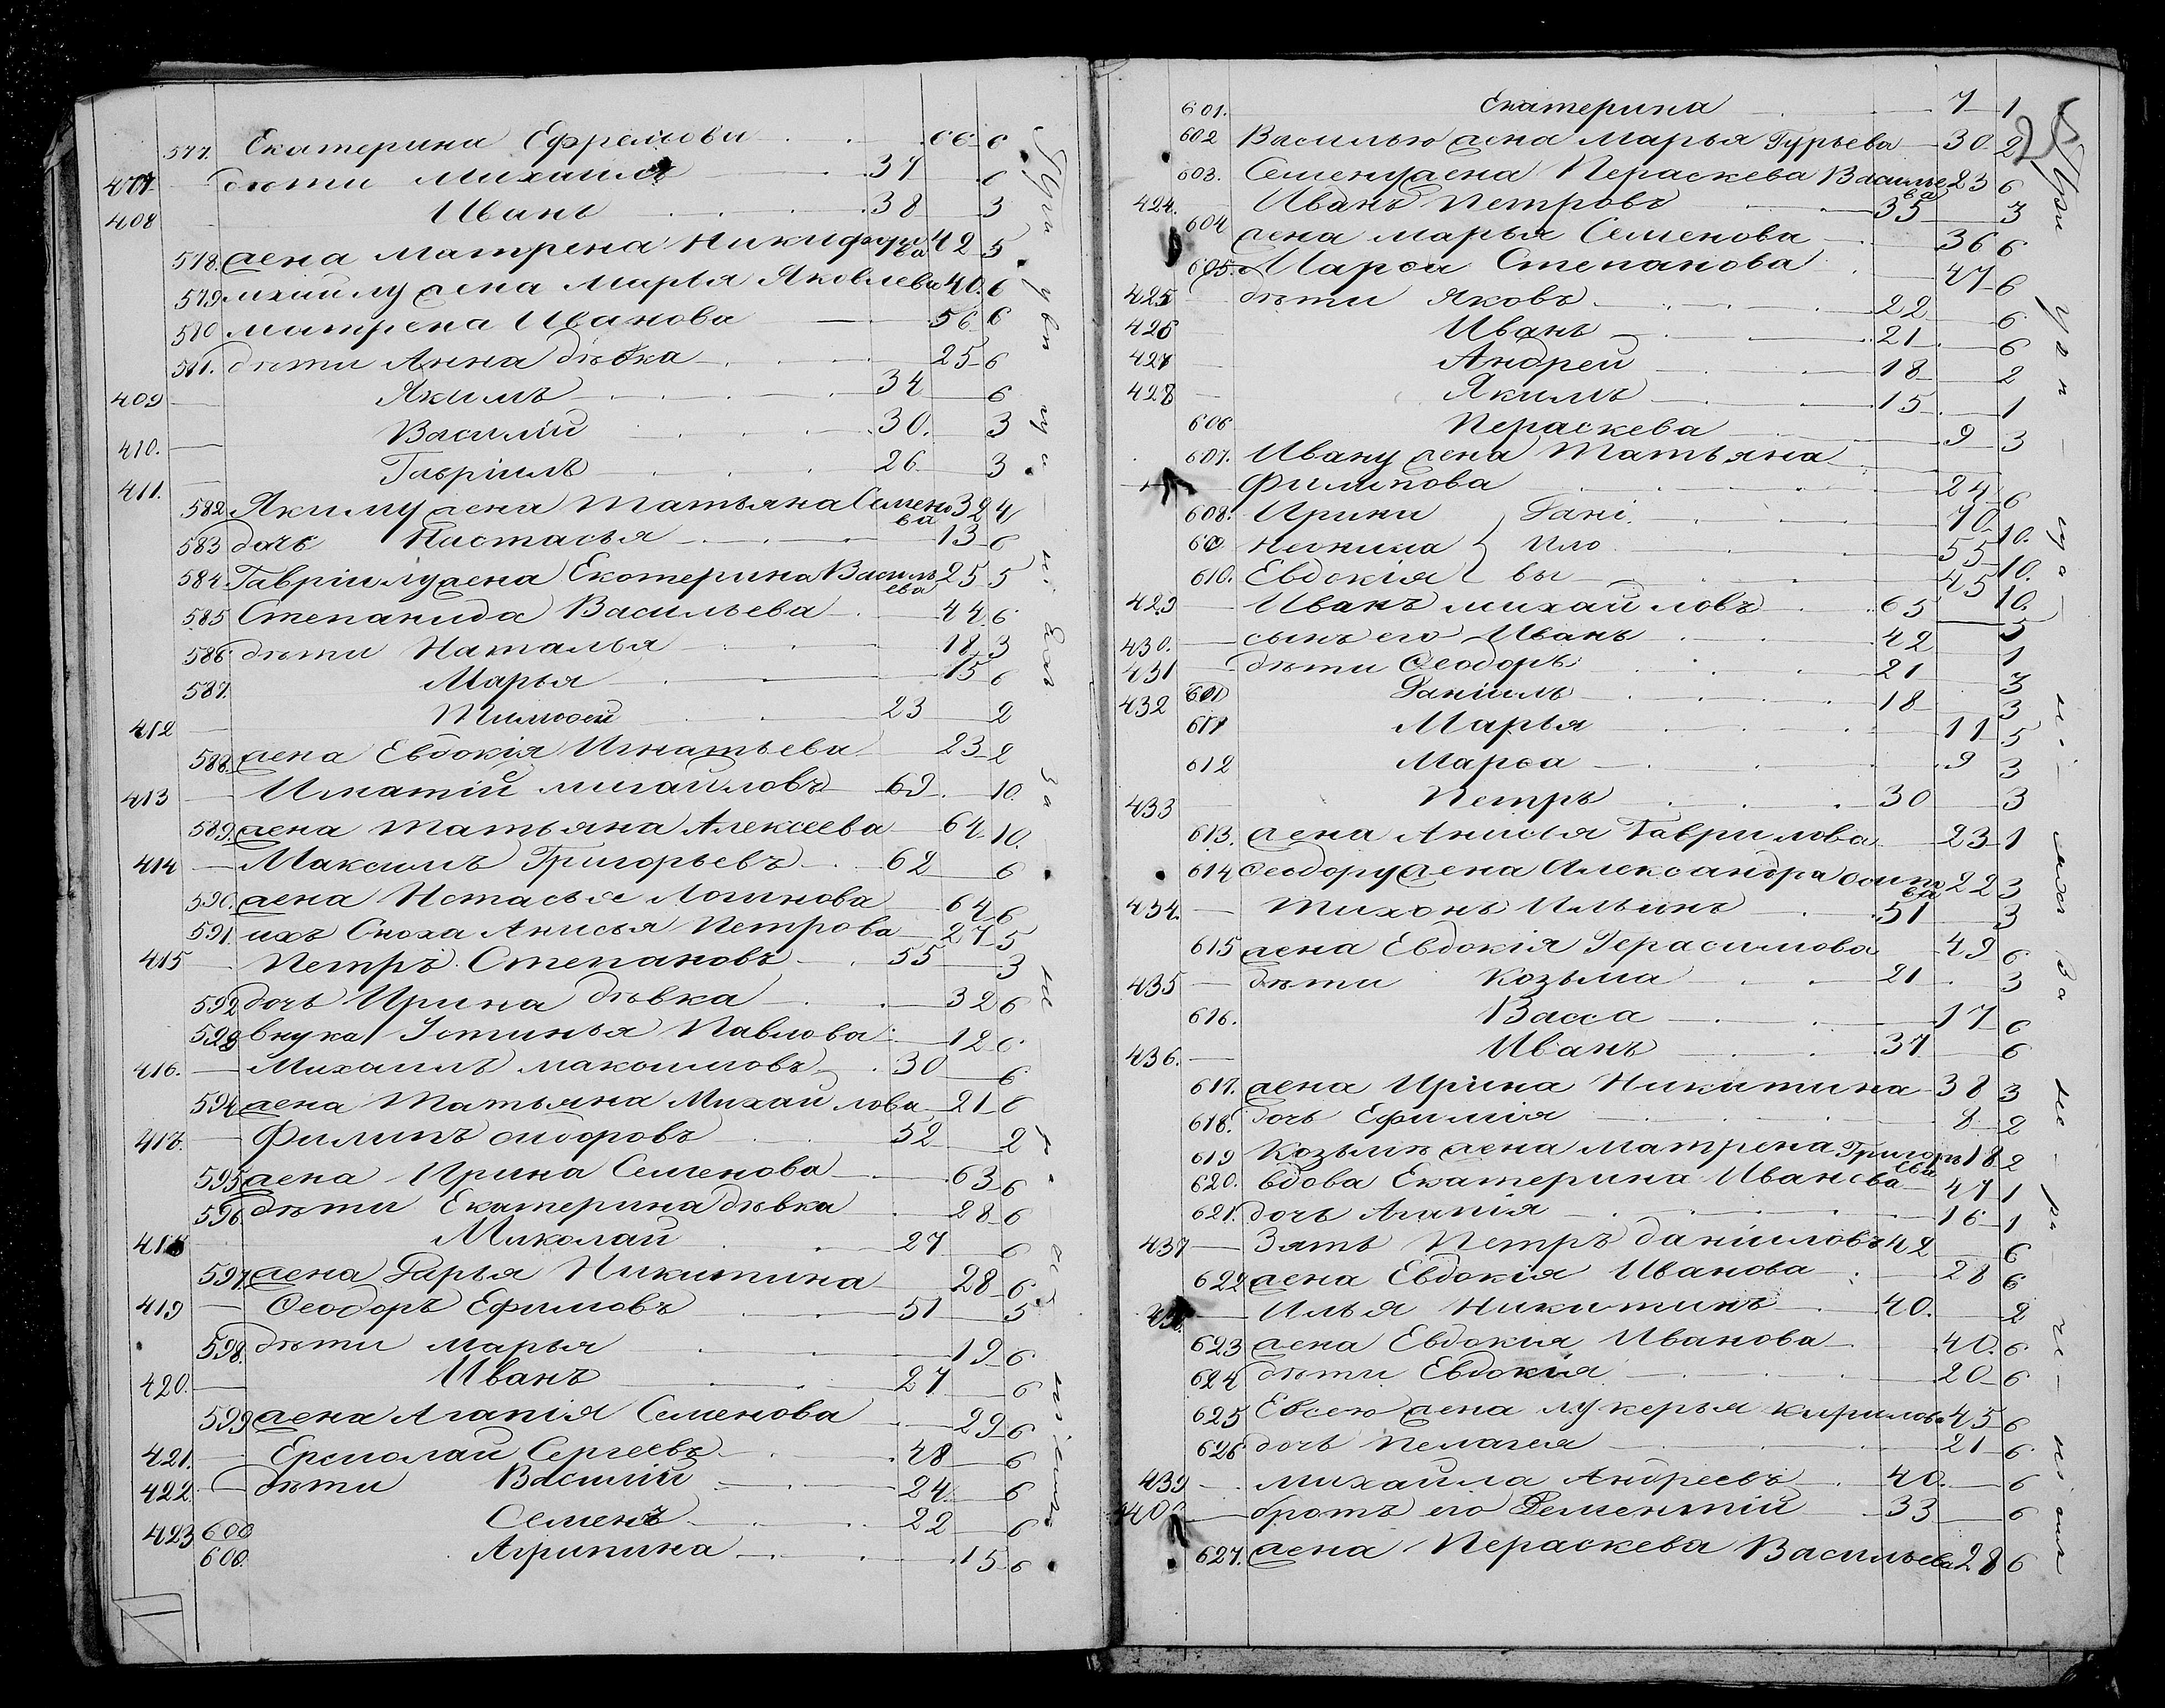 577. Екатерина Ефремова 66 6
407 дѣти Михаилъ 37 6
408 Иванъ 38 3
578. жена Матрена Никифорова 42 5
579 Михаилу жена Марья Яковлева 40. 6
580 Матрена Иванова 56 6
581. дѣти Анна дѣвка 25 6
409 Якимъ 34 6
410. Василій 30. 3
411. Гавріилъ 26 3
582 Якиму жена Татьяна Семенова 32 4
583 дочь Настасья 13 6
584 Гавріилу жена Екатерина Васильева 25 5
585 Степанида Васильева 44 6
586 дѣти Наталья 18 3
587. Марья 15 6
412 Тимофей 23 2
588. жена Евдокія Игнатьева 23 2
413 Игнатій Михайловъ 69. 10.
589. жена Татьяна Алексеева 64 10.
414 Максимъ Григорьевъ 62 6
590. жена Нстасья Логинова 64 6
591. ихъ Сноха Анисья Петрова 27 5
415 Петръ Степановъ 55 3
592 дочь Ирина дѣвка 32 6
593 внука Устинья Павлова 12 6
416. Михаилъ Максимовъ 30 6
594 жена Татьяна Михайлова 21 6
417. Филипъ 52 2
595 жена Ирина Семенова 63 6
596 дѣти Екатерина дѣвка 28 6
418 Миколай 27 6
597. жена Дарья Никитина 28 6
419 Ѳеодоръ Ефимовъ 51 3
598. дѣти Марья 19 6
420. Иванъ 27 6
599 жена Агапія Семенова 29 6
421. Ермолай Сергеевъ 48 6
422 дѣти Василій 24 6
423 600 Семенъ 22 6
600. Агрипина 15 6
При увѣ ща
601. Екатерина 7 1
602 Василью жена Марья Гурьева 30. 2
603. Семену жена Пераскева Васильева 23 6
424. Иванъ Петровъ 35 3
604 жена Марья Семенова 36 6
605. Марѳа Степанова 47 6
425 дѣти Яковъ 22 6
426 Иванъ 21 6
427 Андрей 18 2
428 Якимъ 15 1
606 Пераскева 9 3
607. Ивану жена Татьяна
Филипова 24 6
608. Ирини Дані 70 10.
60 Негнила ило 55 10.
610. Евдокія вы 45 10.
429 Иванъ Михайловъ 65 5
430. сынъ его Иванъ 42 1
431 дѣти Ѳеодоръ 21 3
432 601 Даніилъ 18 3
611 Марья 11 5
612 Марѳа 9 3
433 Петръ 30 3
613. жена Анисья Гаврилова 23 1
614 Ѳеодору жена Александра 22 3
434. Тихонъ Ильинъ 51 3
615 жена Евдокія Герасимова 49 6
435 дѣти Козьма 21 3
616. Васса 17 6
436. Иванъ 37 6
617. жена Ирина Никитина 38 3
618. дочь Ефимія 8 2
619 Козьмѣ жена Матрена Григорьева 18 2
620. вдова Екатерина Иванова 47 1
621. дочь Агапія 16 1
437 Зять Петръ Даниловъ 42 6
622 жена Евдокія Иванова 28 6
438. Илья Никитинъ 40. 2
623 жена Евдокія Иванова 40. 6
624 дѣти Евдокія 20 6
625 Евсею жена Лукерья Кирилова 45 6
626 дочь Пелагея 21 6
439 Михайла Андреевъ 40. 6
440 братъ его Дементій 33 6
627. жена Пераскева Васильева 28 6